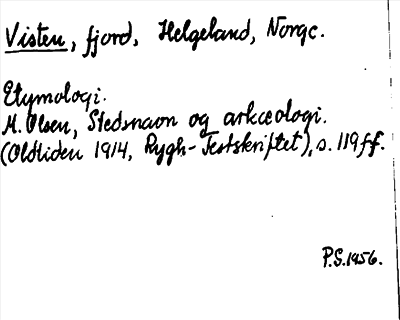 Visten, fjord, Helgeland, Norge.
Etymologi.
M. Olsen, Stedsnavn og arkæologi.
(Oldtiden 1914, Rygh-Festskriftet), s. 119 ff.
P.S. 1956.